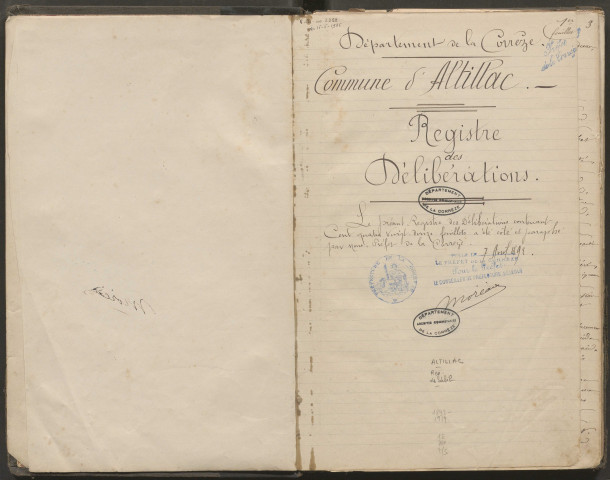 Département de la Corrèze.
Commune d'Altillac. —
Registre
des
Délibérations.
DÉPARTEMENT
DE LA CORRÈZE
Le présent Registre des Délibérations comprenant
Cent quatre vingt douze feuillets a été coté et paraphé
par nous, Préfet de la Corrèze
TULLE, LE 7 Avril 1891
LE PRÉFET DE LA CORRÈZE
Pour le Préfet
LE CONSEILLER DE PRÉFECTURE DÉLÉGUÉ
Moreau
DÉPARTEMENT
ARCHIVES
DE LA CORRÈZE
ALTILLAC
Reg
de délib